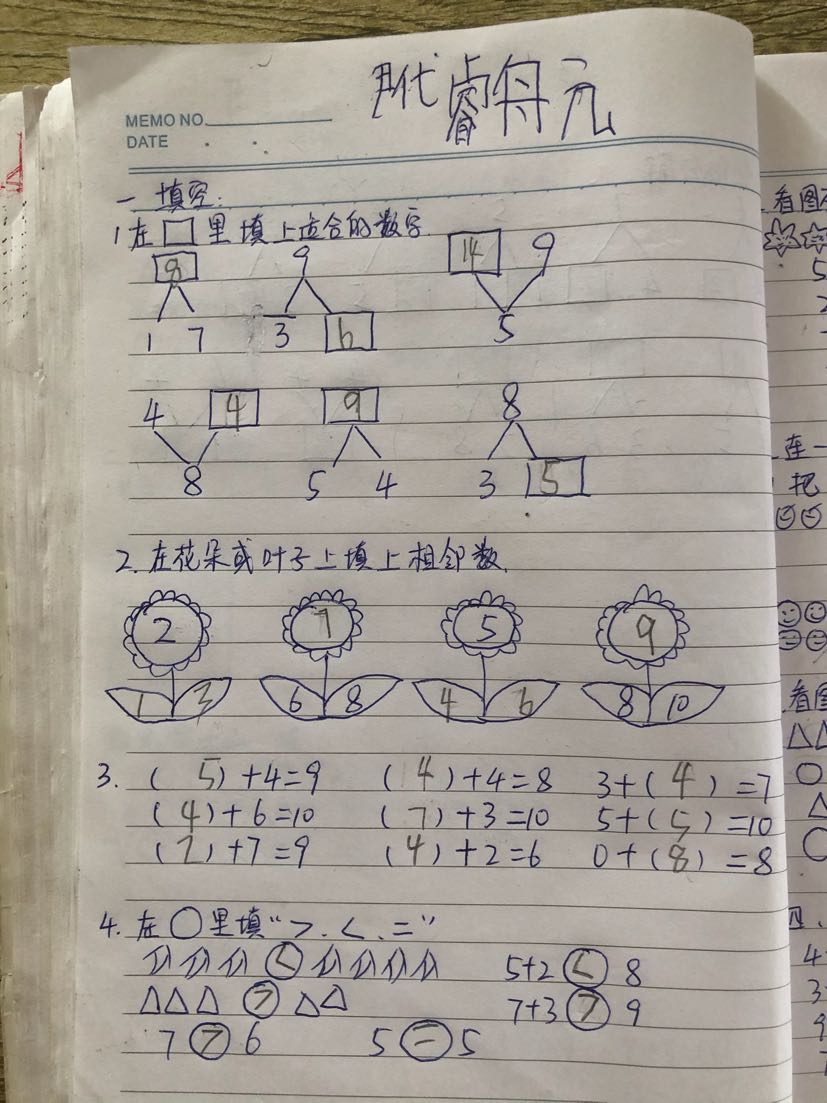 MEMO NO.
DATE
一 填空:
1 在□里填上适合的数字
8 9 14 9
1 7 3 6 5
4 4 9 8
8 5 4 3 5
2. 在花朵或叶子上填上相邻数.
2 7 5 9
1 3 6 8 4 6 8 10
3. ( 5 ) + 4 = 9 ( 4 ) + 4 = 8 3 + ( 4 ) = 7
( 4 ) + 6 = 10 ( 7 ) + 3 = 10 5 + ( 5 ) = 10
( 2 ) + 7 = 9 ( 4 ) + 2 = 6 0 + ( 8 ) = 8
4. 在○里填“>、<、=”
< 5+2 < 8
> 7+3 > 9
7 > 6 5 = 5
看图
5
2
连一
把
看图
四、
4
3
9
7